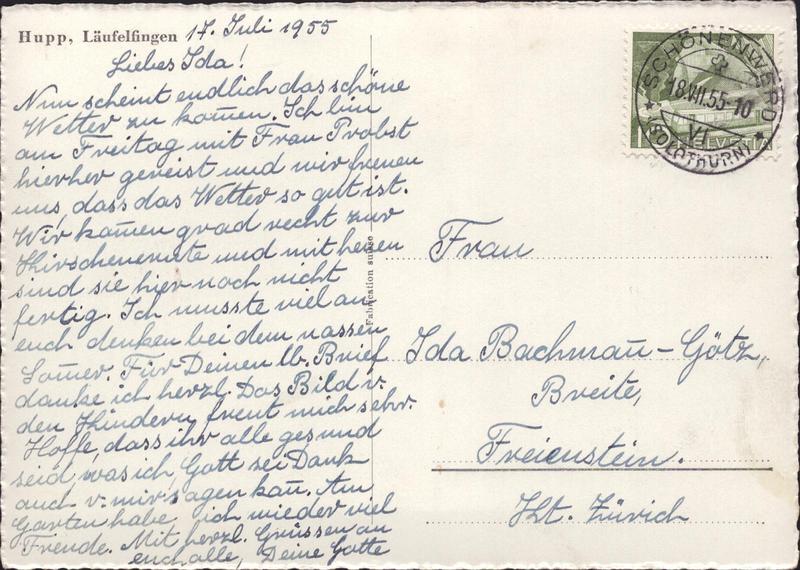 Hupp, Läufelfingen 17. Juli 1955
Liebes Ida!
Nun scheint endlich das schöne
Wetter zu kom̄en. Ich bin
am Freitag mit Frau Probst
hierher gereist und wir freuen
uns, dass das Wetter so gut ist.
Wir kam̄en grad recht zur
Kirschenernte und mit heuen
sind sie hier noch nicht
fertig. Ich musste viel an
euch denken bei dem nassen
Som̄er. Für Deinen lb. Brief
danke ich herzl. Das Bild v.
den Kindern freut mich sehr.
Hoffe, dass ihr alle gesund
seid, was ich, Gott sei Dank
auch v. mir sagen kan̄. Am
Garten habe ich wieder viel
Freude. Mit herzl. Grüssen an
euch alle, Deine Gotte
Fabrication suisse
SCHÖNENWERD
18.VII.55-10
VI
(SOLOTHURN)
HELVETIA
Frau
Ida Bachman̄-Götz,
Breite,
Freienstein.
Kt. Zürich